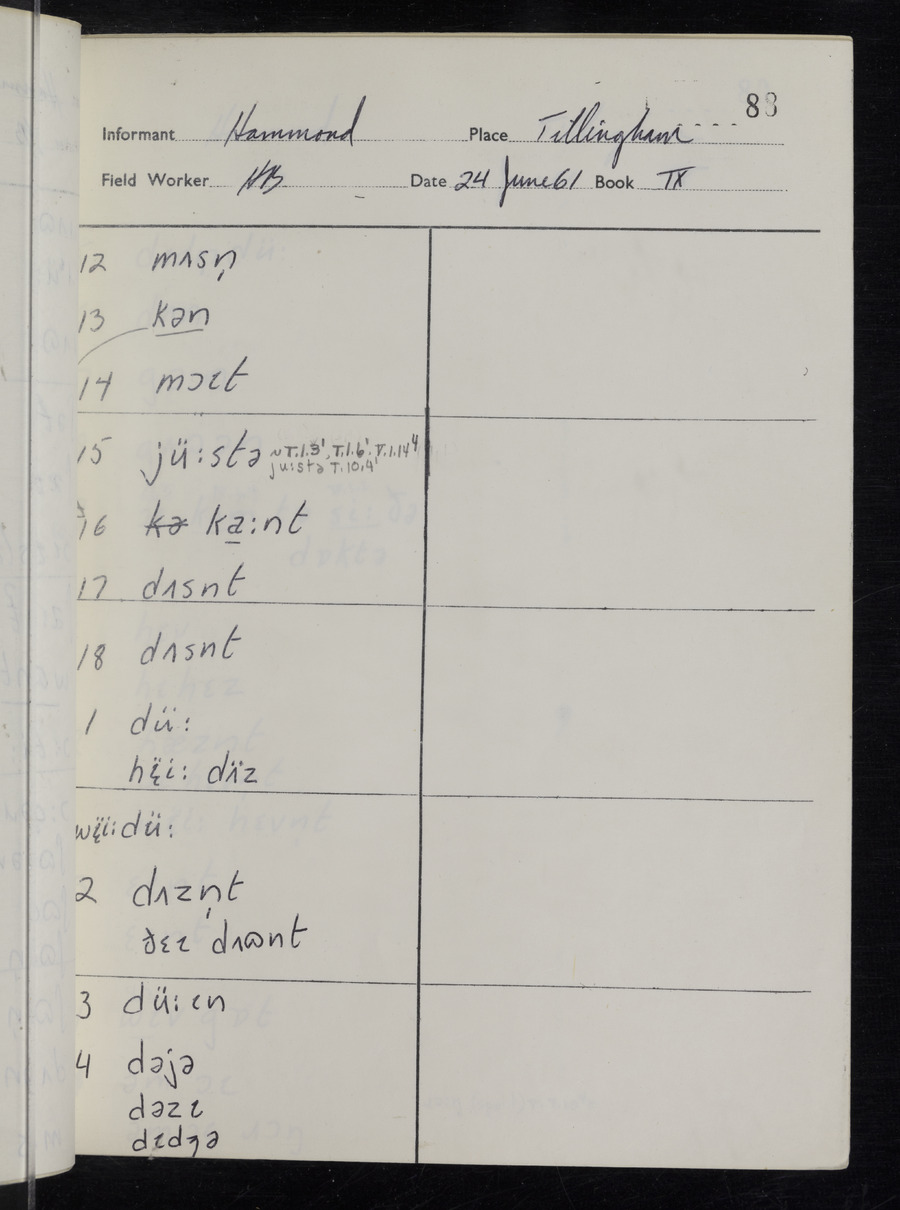 88
Informant Hammond Place Tillingham
Field Worker NB Date 24 June 61 Book IX
12 mʌsn̩
13 kən
14 mɔɪt
15 jü:stə ~ T.1.3¹, T.1.6¹. V.1.14⁴
ju:stə T.10.4¹
16 kə ka̱:nt
17 dʌsnt
18 dʌsnt
1 dü:
hë̞i: dïz
wë̞i: dü:
2 dʌzn̩t
ðɛɪ dʌɷnt
3 dü:ɪn
4 dəjə
dəzɪ
dɪdʒə